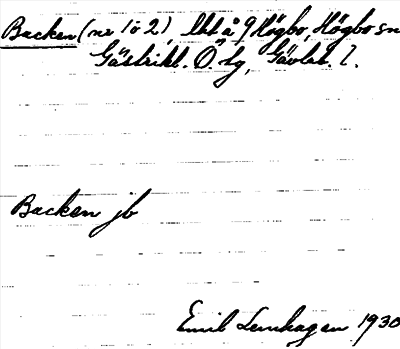 Backen (nr 1 o 2), lht å 9 Högbo, Högbo sn
Gästrikl. Ö. tg, Gävleb. l.
Backen jb
Emil Lenhagen 1930